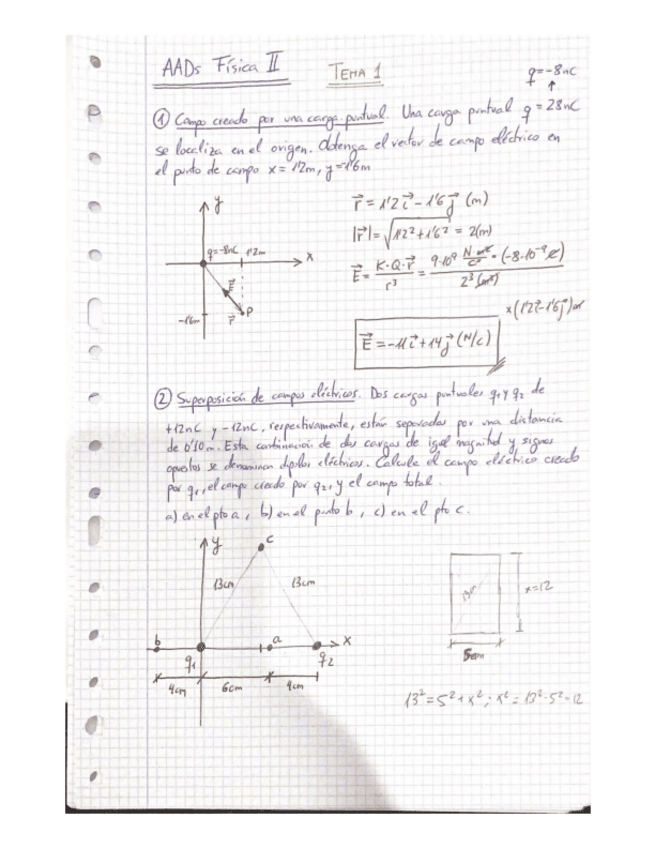 AADs Física II
TEMA 1
q=-8nC
① Campo creado por una carga puntual. Una carga puntual q = 28nC
se localiza en el origen. Obtenga el vector de campo eléctrico en
el punto de campo x = 1'2m, y=-1'6m
y
q=-8nC 1'2m x
E
-1'6m r P
r = 1'2i - 1'6j (m)
|r| = √1'2² + 1'6² = 2(m)
E = K·Q·r / r³ = 9·10⁹ N·m²/C² · (-8·10⁻⁹ C) / 2³ (m³)
x(1'2i-1'6j)m
E = -11i + 14j (N/C)
② Superposición de campos eléctricos. Dos cargas puntuales q1 y q2 de
+12nC y -12nC, respectivamente, están separadas por una distancia
de 0'10m. Esta combinación de dos cargas de igual magnitud y signos
opuestos se denominan dipolos eléctricos. Calcule el campo eléctrico creado
por q1, el campo creado por q2, y el campo total.
a) en el pto a, b) en el punto b, c) en el pto c.
y c
13cm 13cm
b a x
q1 q2
4cm 6cm 4cm
13cm x=12
5cm
13² = 5² + x²; x² = 13²-5² = 12